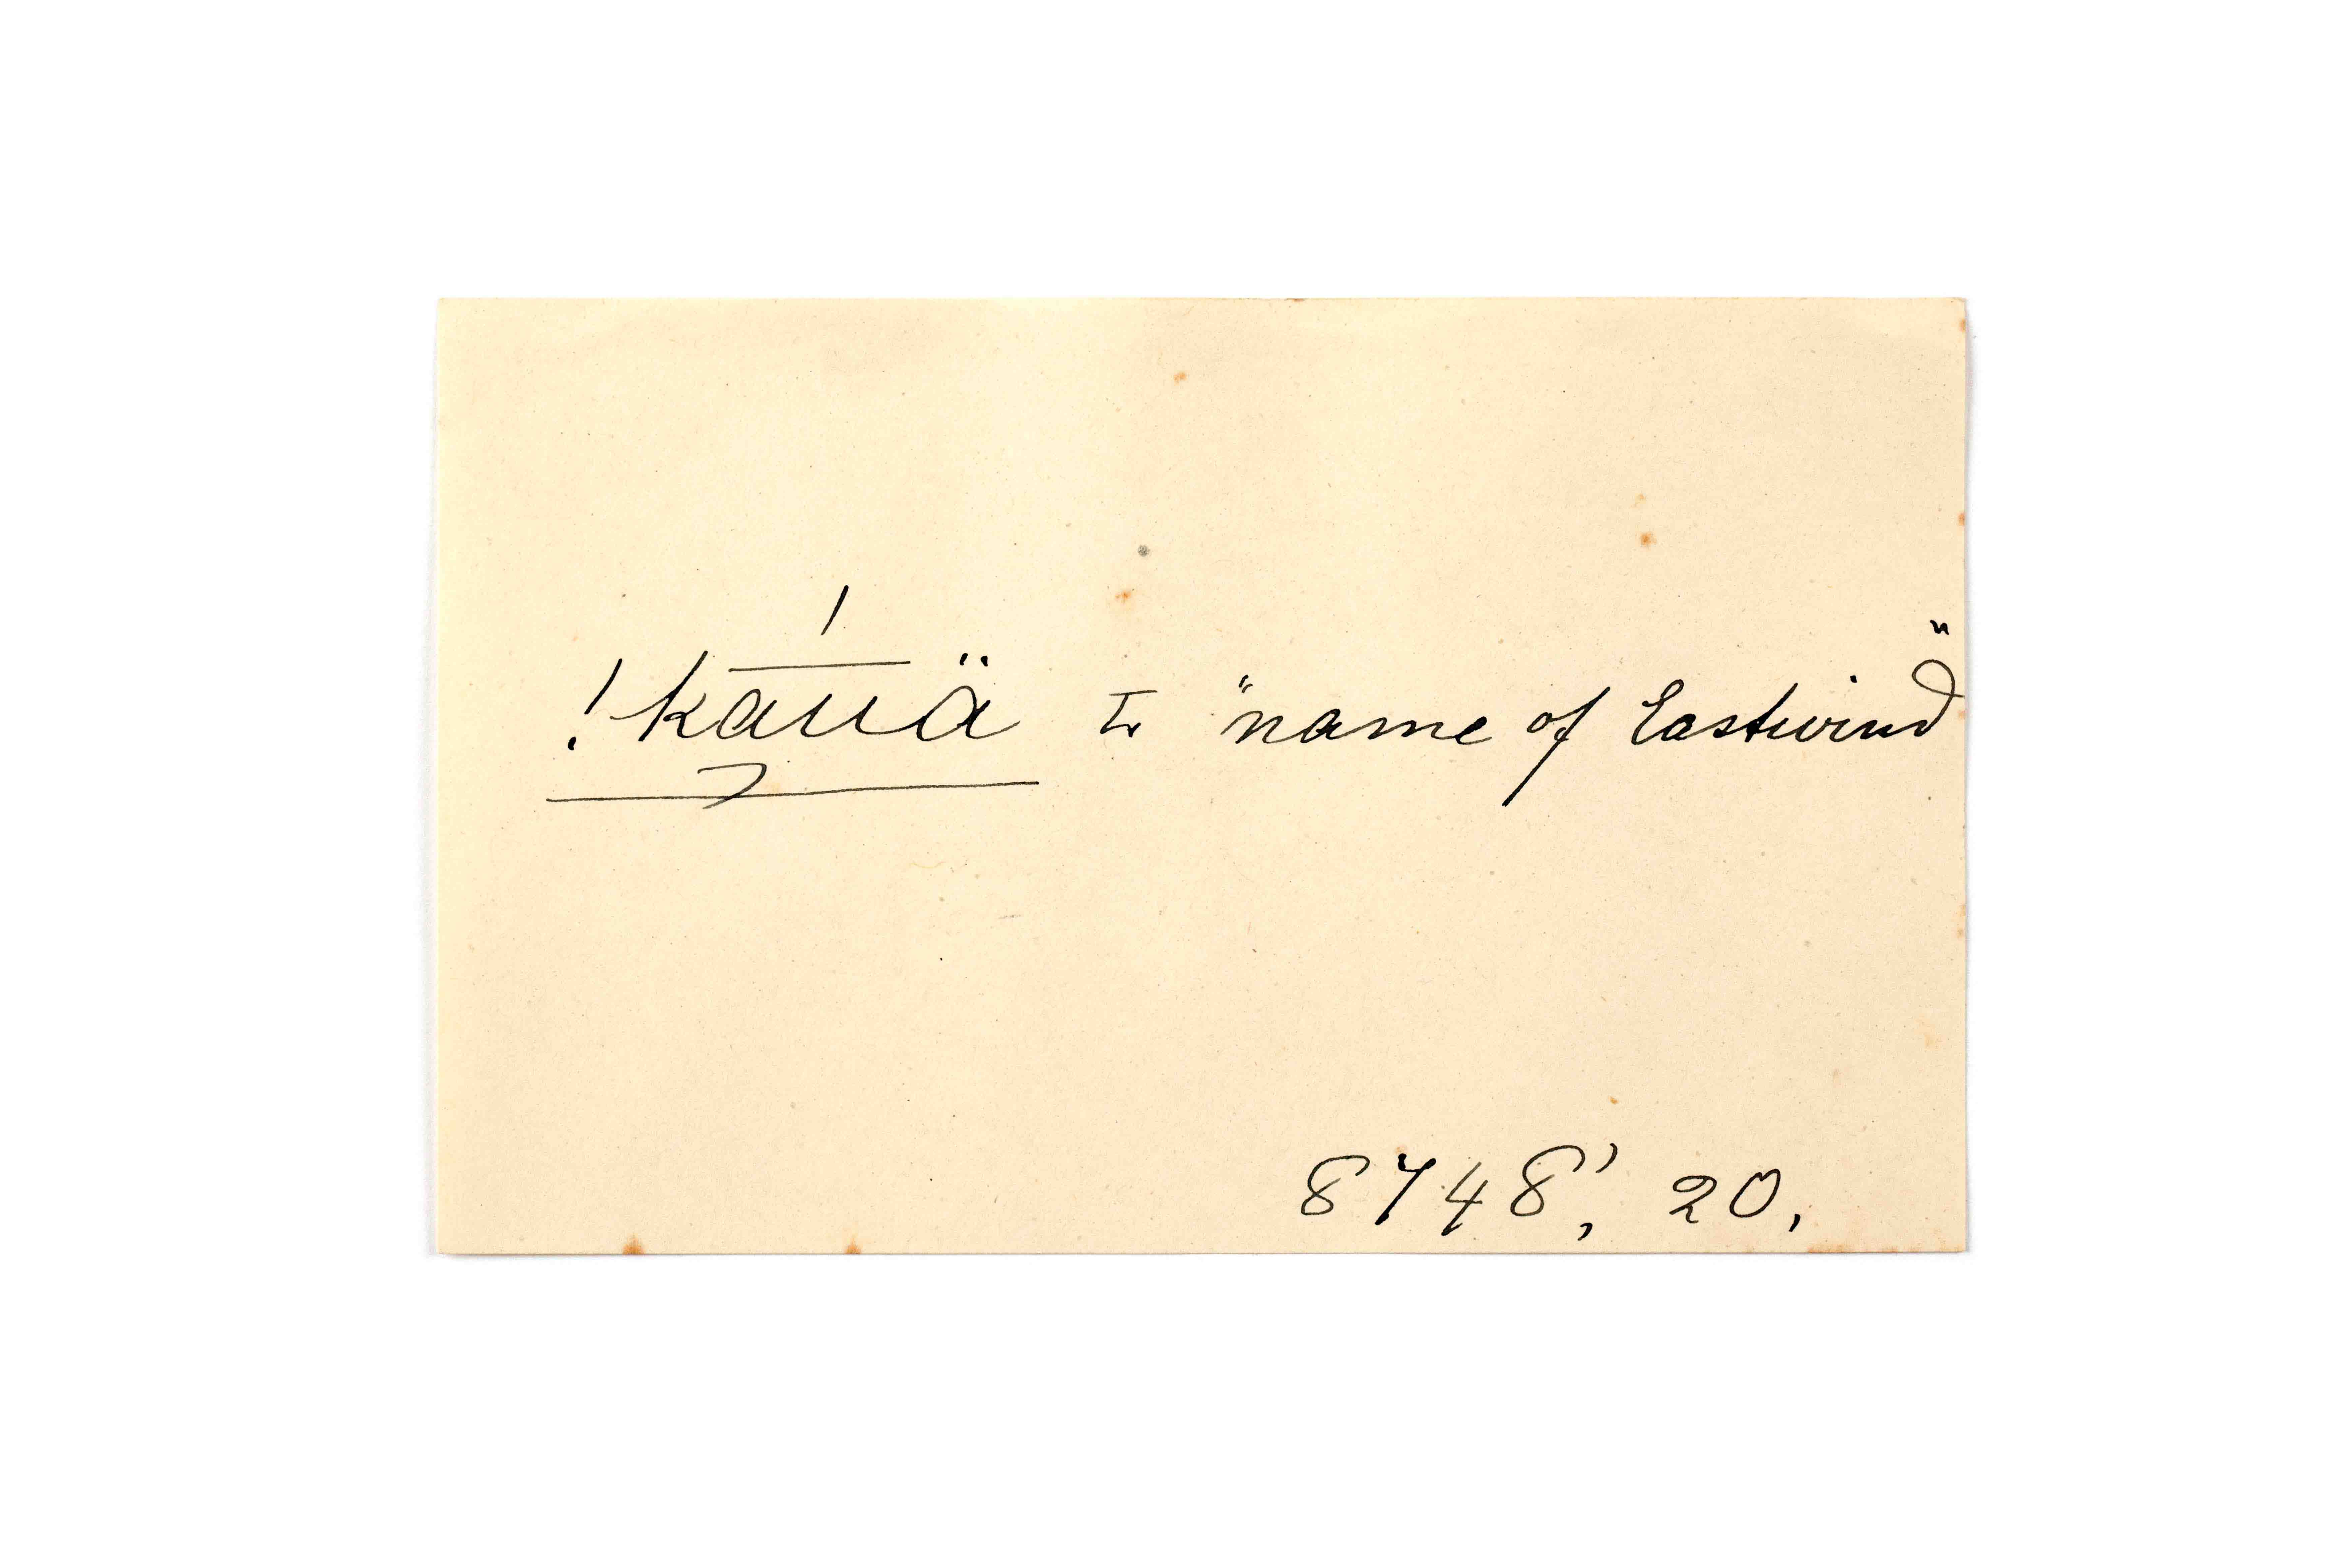 !kauä to "name of Eastwind"
8748', 20.